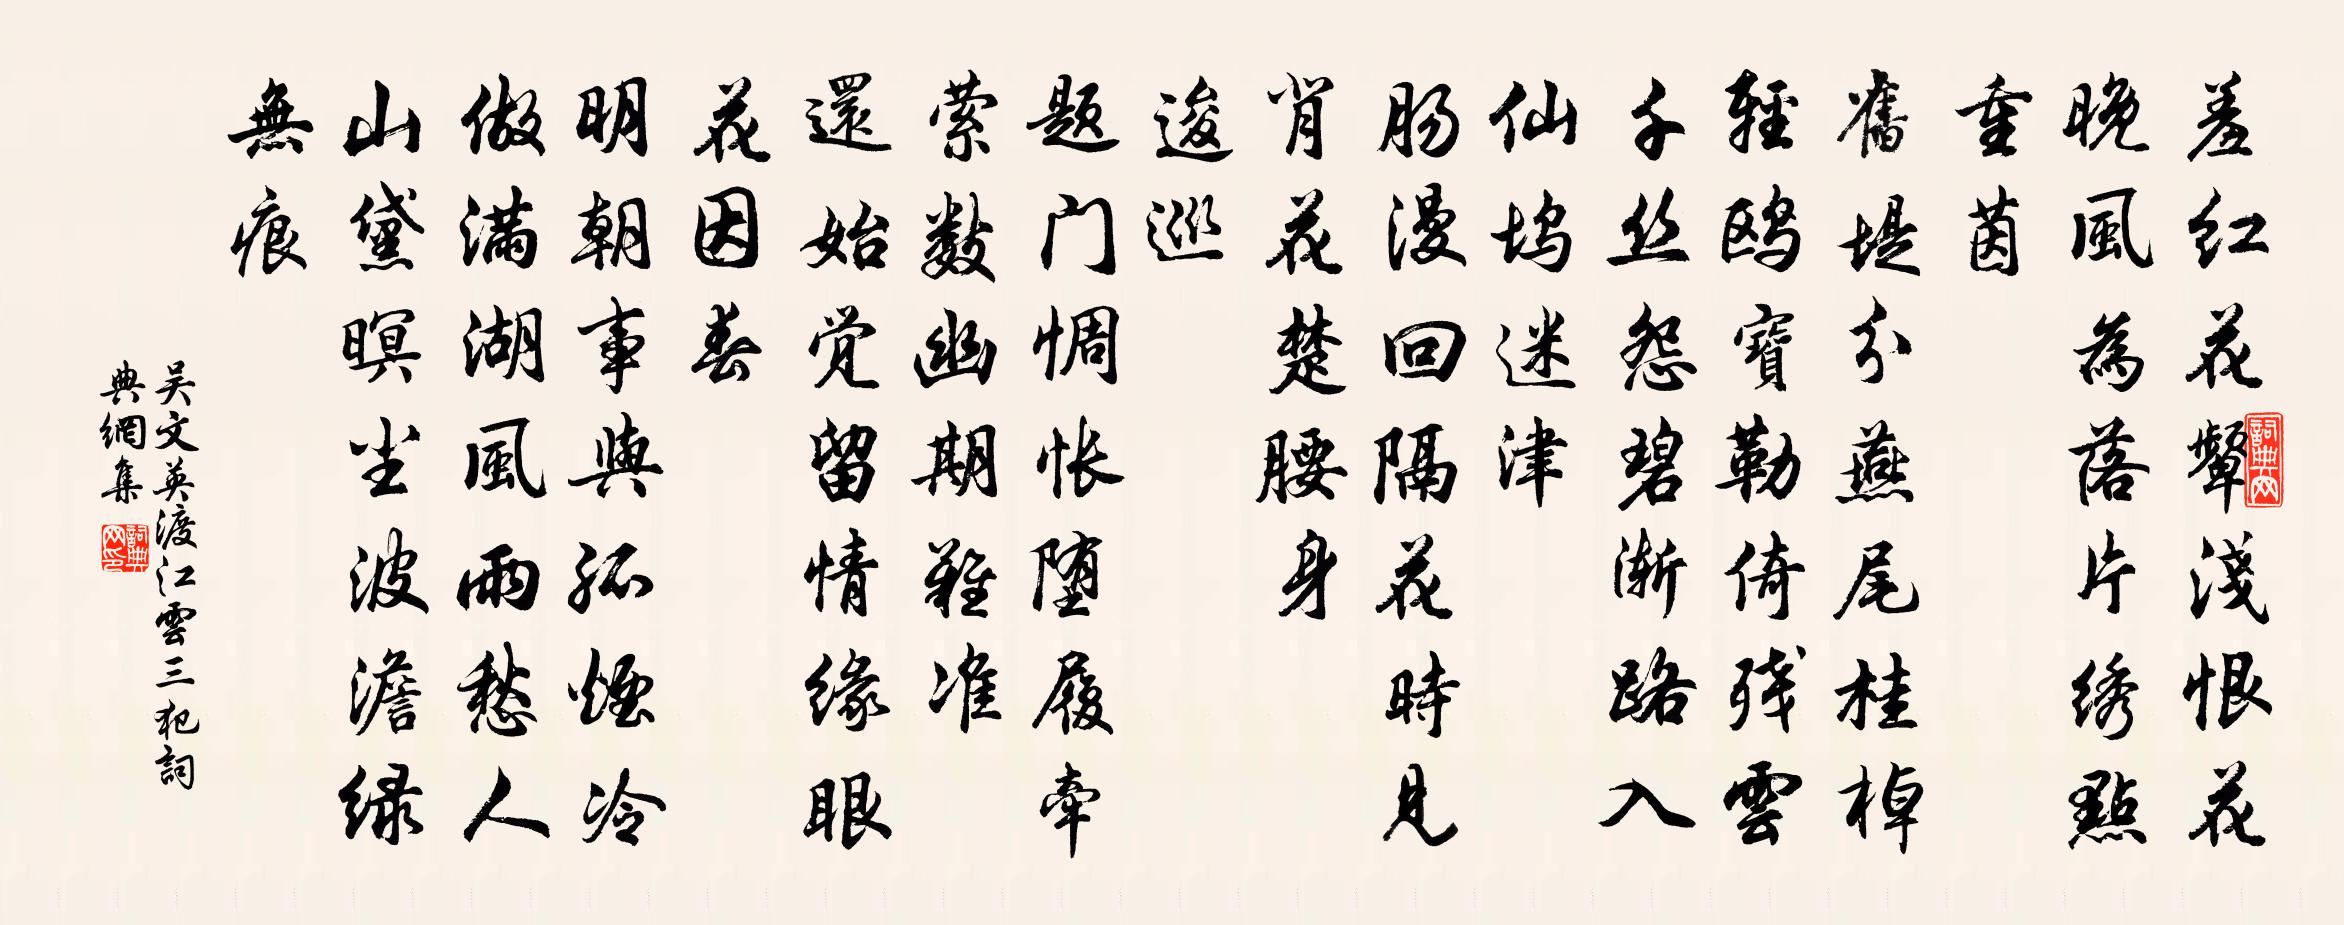 羞红花颦淺恨花
晚風為落片绣點
重茵
舊堤分燕尾桂棹
輕鸥寶勒倚残雲
千丝怨碧渐路入
仙坞迷津
肠漫回隔花時見
肖花楚腰身
逡巡
题门惆怅堕履牵
萦数幽期難准
還始觉留情缘眼
花因春
明朝事與孤煙冷
做满湖風雨愁人
山黛暝尘波澹绿
無痕
吴文英渡江雲三犯詞
典網集
詞典网
詞典网印